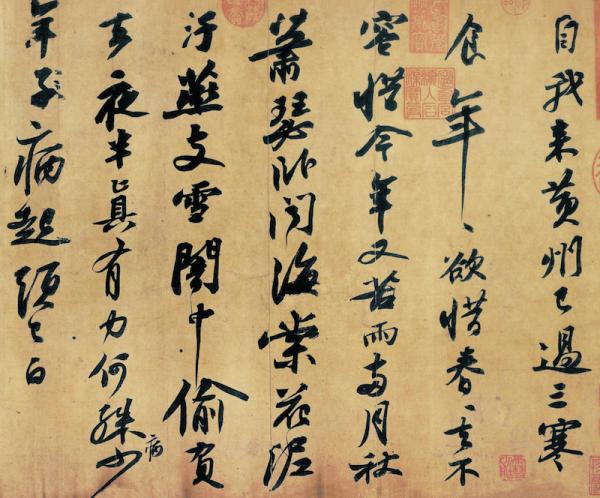 自我來黃州已過三寒
食年〻欲惜春〻去不
容惜今年又苦雨兩月秋
蕭瑟卧聞海棠花泥
汙燕支雪闇中偷負
去夜半真有力何殊病少
年子病起頭已白